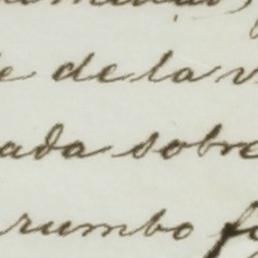 e de la v
ada sobre
rumbo fo